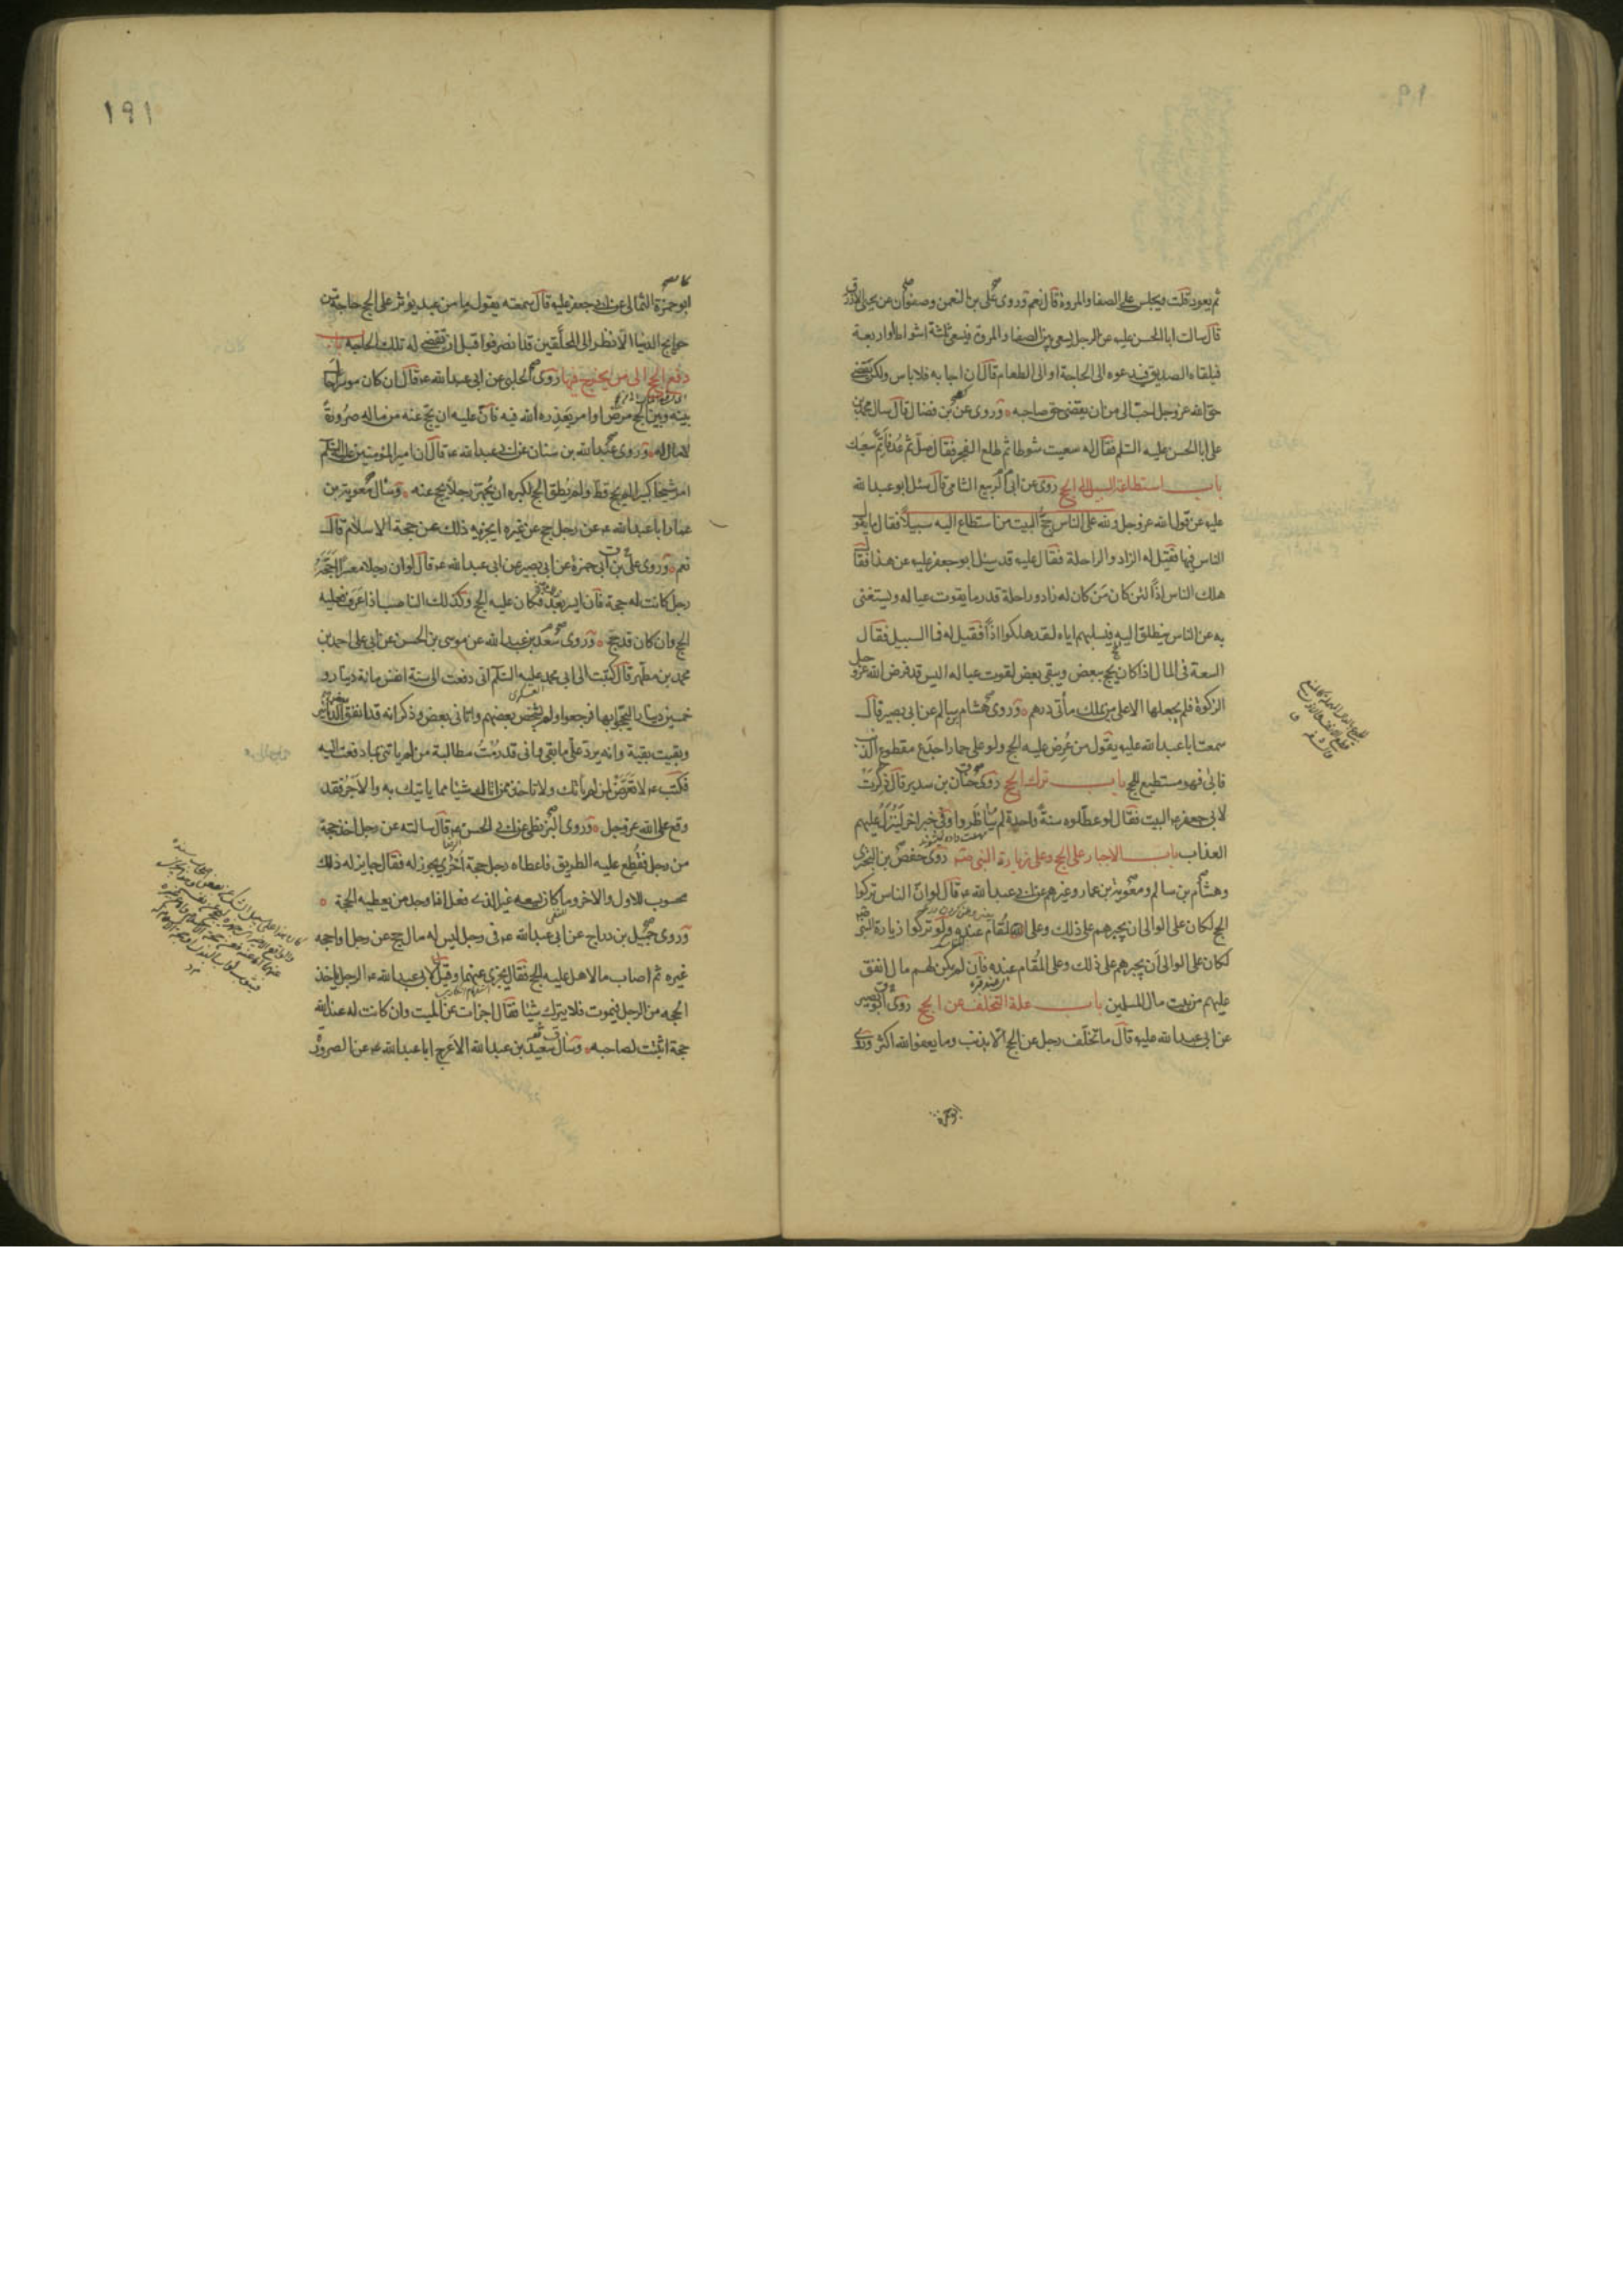 ثم يعود قلت ويجلس على الصفا والمروة قال نعم وروى على بن النعمن وصفوان عن يحيى الازرق
قال سالت ابا الحسن عليه عن الرجل يسعى بين الصفا والمروة فيسعى ثلثة اشواط او اربعة
فيلقاه الصديق فيدعوه الى الحاجة او الى الطعام قال ان اجابه فلا باس ولكن يقضى
حق الله عز وجل احب الى من ان يقضى حق صاحبه وروى عن بن فضال قال سال محمد بن
على ابا الحسن عليه السلم فقال له سعيت شوطا ثم طلع الفجر فقال صل ثم عد فاتم سعيك
باب استطاعة السبيل الى الحج روى عن ابى الربيع الشامى قال سئل ابو عبد الله
عليه عن قول الله عز وجل ولله على الناس حج البيت من استطاع اليه سبيلا فقال ما يقول
الناس فيها فقيل له الزاد والراحلة فقال عليه قد سئل ابو جعفر عليه عن هذا فقال
هلك الناس اذا لئن كان من كان له زاد وراحلة قدر ما يقوت عياله ويستغنى
به عن الناس ينطلق اليه فيسلبهم اياه لقد هلكوا اذا فقيل له فما السبيل فقال
السعة فى المال اذا كان يحج ببعض ويبقى بعض لقوت عياله اليس قد فرض الله عز وجل
الزكوة فلم يجعلها الا على من يملك مأتى درهم وروى هشام بن سالم عن ابى بصير قال
سمعت ابا عبد الله عليه يقول من عرض عليه الحج ولو على حمار اجدع مقطوع الذنب
فابى فهو مستطيع للحج باب ترك الحج روى حنان بن سدير قال ذكرت
لابى جعفر عه البيت فقال لو عطلوه سنة واحدة لم يناظروا وفى خبر اخر لينزل عليهم
العذاب باب الاجبار على الحج وعلى زيارة النبى روى حفص بن البخترى
وهشام بن سالم ومعوية بن عمار وغيرهم عن ابى عبد الله عه قال لو ان الناس تركوا
الحج لكان على الوالى ان يجبرهم على ذلك وعلى المقام عنده ولو تركوا زيارة النبى
لكان على الوالى ان يجبرهم على ذلك وعلى المقام عنده فان لم يكن لهم مال انفق
عليهم من بيت مال المسلمين باب علة التخلف عن الحج روى ابو بصير
عن ابى عبد الله عليه قال ما تخلف رجل عن الحج الا بذنب وما يعفو الله اكثر وروى
ابو حمزة
١٩١
ابو حمزة الثمالى عن ابى جعفر عليه قال سمعته يقول ما من عبد يؤثر على الحج حاجة من
حوايج الدنيا الا نظر الى المحلقين قد انصرفوا قبل ان تقضى له تلك الحاجة باب
دفع الحج الى من يخرج فيها روى الحلبى عن ابى عبد الله عه قال ان كان موسرا
بينه وبين الحج مرض او امر يعذره الله فيه فان عليه ان يحج عنه من ماله صرورة
لا مال له وروى عبد الله بن سنان عن ابى عبد الله عه قال ان امير المؤمنين عليه السلم
امر شيخا كبيرا لم يحج قط ولم يطق الحج لكبره ان يجهز رجلا يحج عنه وسال معوية بن
عمار ابا عبد الله عه عن رجل حج عن غيره ايجزيه ذلك عن حجة الاسلام قال
نعم وروى على بن ابى حمزة عن ابى بصير عن ابى عبد الله عه قال لو ان رجلا معسرا احجه
رجل كانت له حجة فان ايسر بعد فكان عليه الحج وكذلك الناصب اذا عرف فعليه
الحج وان كان قد حج وروى سعد بن عبد الله عن موسى بن الحسن عن ابى على احمد بن
محمد بن مطهر قال كتبت الى ابى محمد عليه السلم انى دفعت الى ستة انفس مائة دينار و
خمسين دينارا ليحجوا بها فرجعوا ولم يشخص بعضهم واتانى بعض وذكر انه قد انفق بعض الدنانير
وبقيت بقية وانه يرد على ما بقى وانى قد رمت مطالبة من لم ياتنى بما دفعت اليه
فكتب عه لا تعرض لمن لم ياتك ولا تاخذ ممن اتاك شيئا مما ياتيك به والاجر فقد
وقع على الله عز وجل وروى البزنطى عن ابى الحسن عه قال سالته عن رجل اخذ حجة
من رجل فقطع عليه الطريق فاعطاه رجل حجة اخرى يجوز له فقال جايز له ذلك
محسوب للاول والاخر وما كان يسعه غير الذى فعل اذا وجد من يعطيه الحجة
وروى جميل بن دراج عن ابى عبد الله عه فى رجل ليس له مال حج عن رجل او احجه
غيره ثم اصاب مالا هل عليه الحج فقال يجزى عنهما وقيل لابى عبد الله عه الرجل ياخذ
الحجة من الرجل فيموت فلا يترك شيئا فقال اجزات عن الميت وان كانت له عند الله
حجة اثبتت لصاحبه وسال سعيد بن عبد الله الاعرج ابا عبد الله عه عن الصرورة